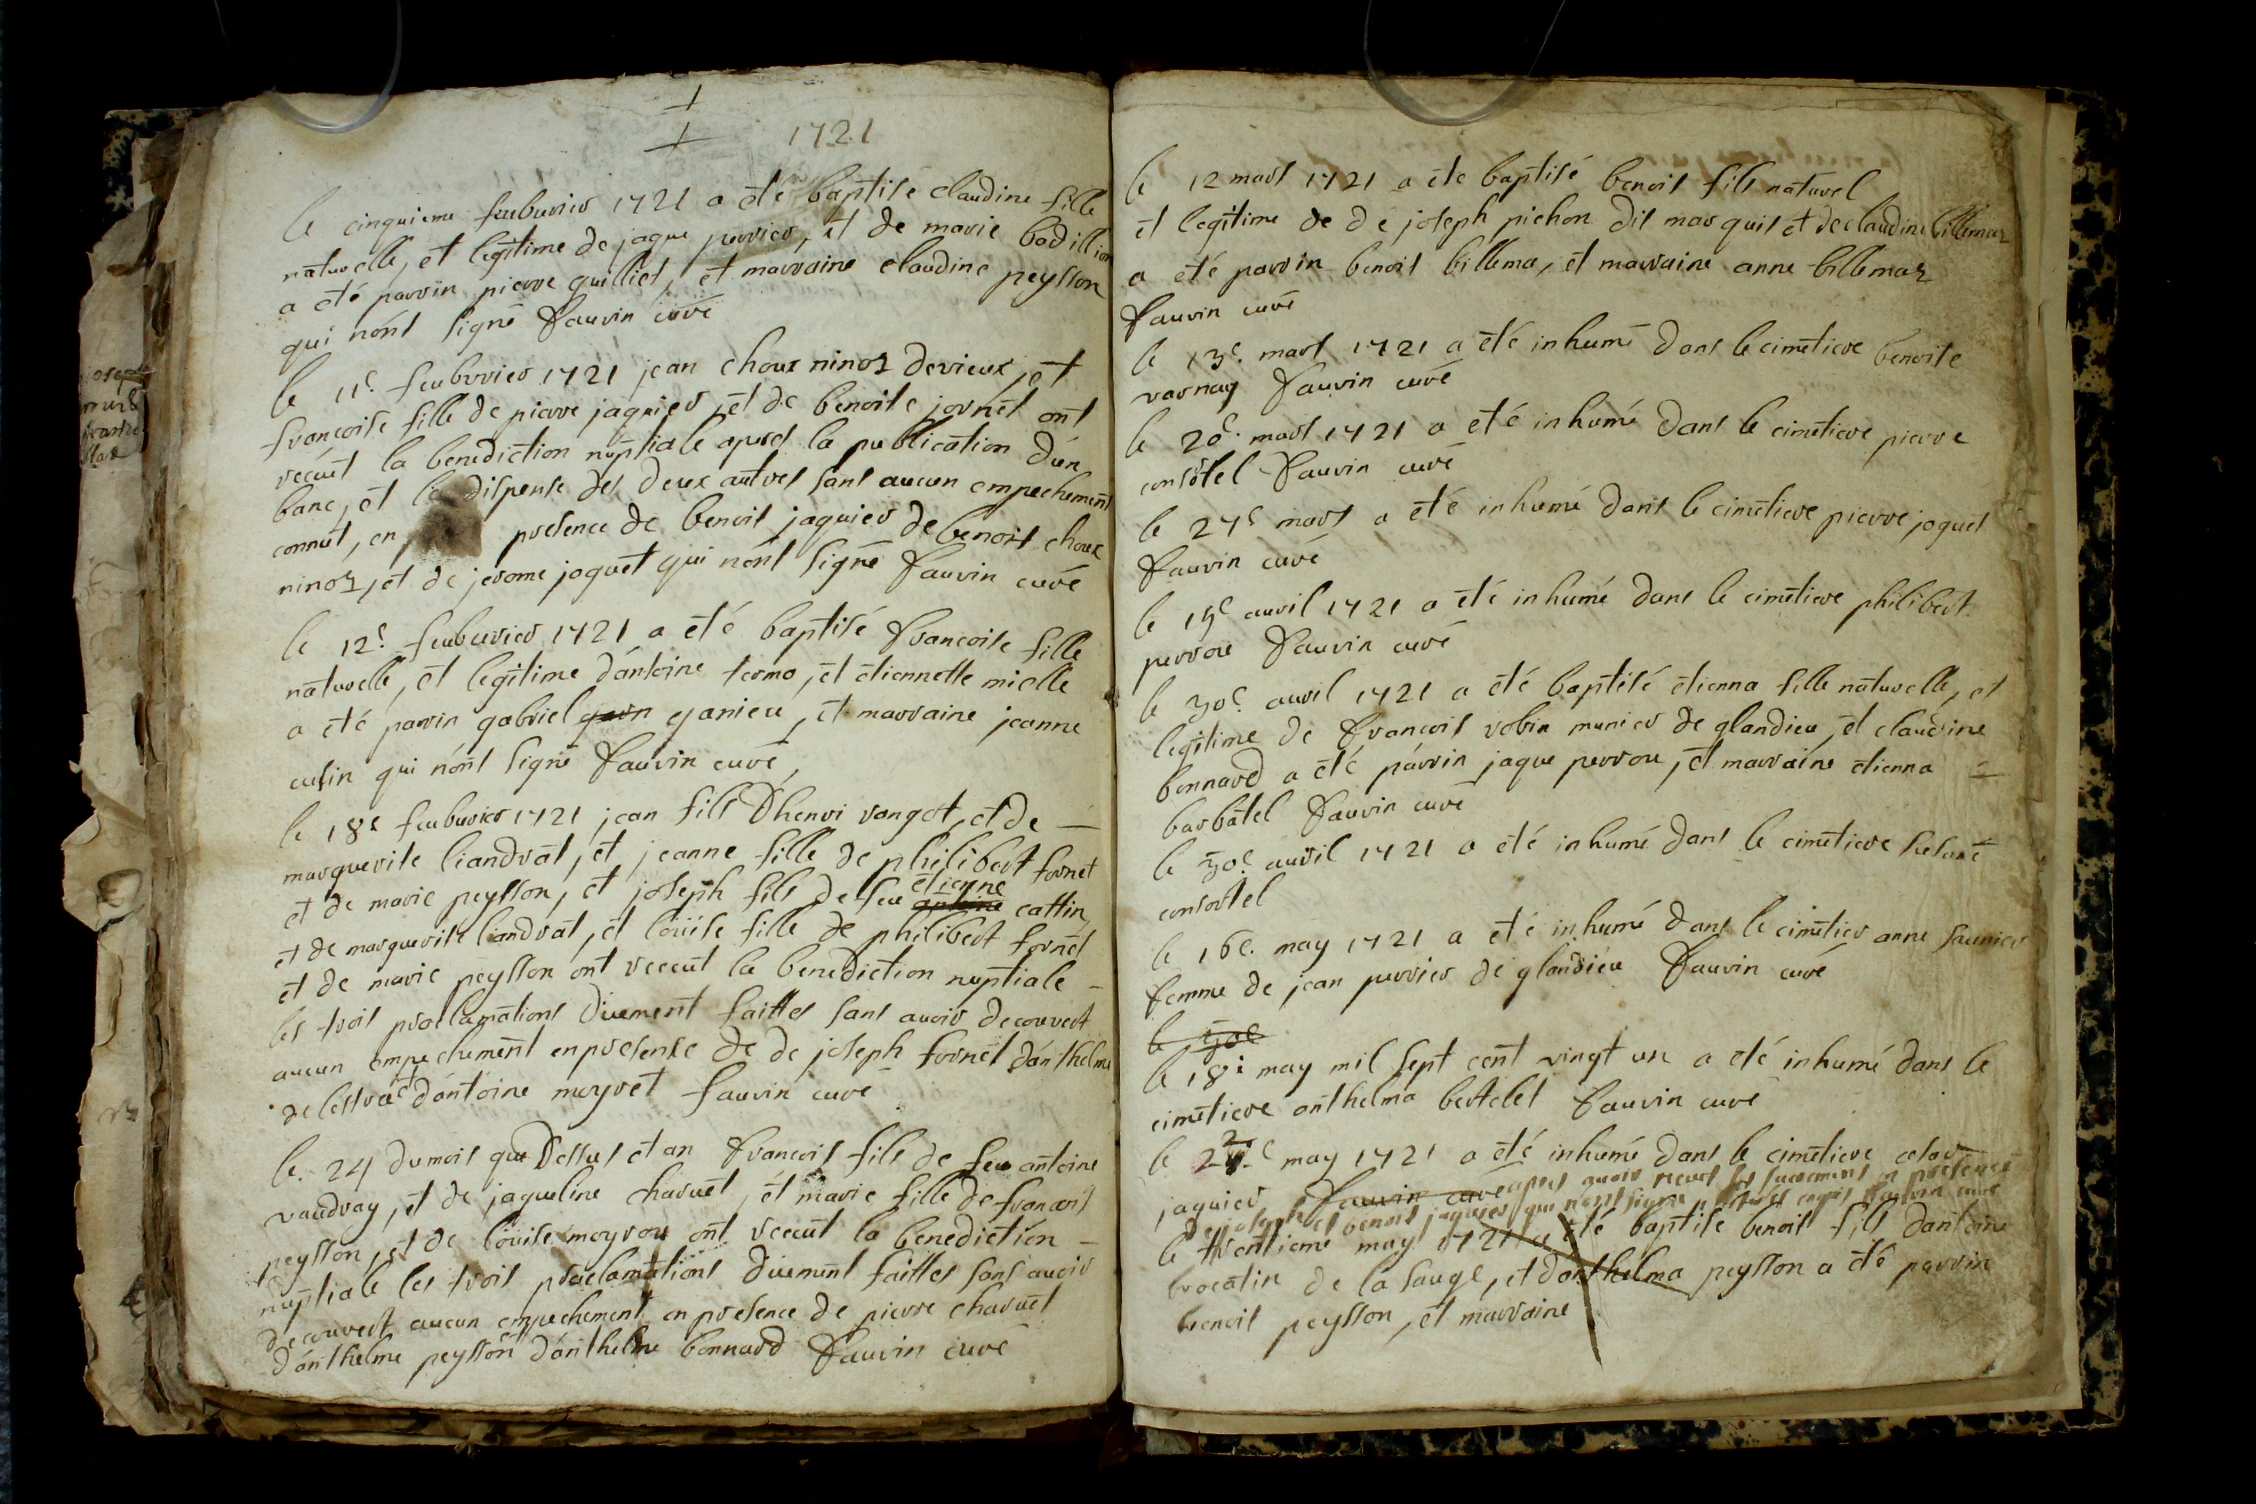 1721
le cinquieme feubvrier 1721 a êté baptisé claudine fille
naturelle, et legitime de jaque perrier, et de marie badillion
a êté parrin pierre quilliet, et marraine claudine peysson
qui nónt signé fauvin curé
le 11e feubvrier 1721 jean choux ninoz derieux, et
francoise fille de pierre jaquier, et de benoite jornet ont
recuët la benediction nuptiale apres la publication d'un
banc, et la dispense des deux autres sans aucun empechement
connut, en presence de benoit jaquier de benoit choux
ninoz, et de jerome joquet qui nónt signé fauvin curé
le 12e feubvrier 1721 a êté baptisé francoise fille
naturelle, et legitime dántoine termo, et êtiennette mielle
a êté parrin gabriel ganieu, et marraine jeanne
cusin qui nónt signé fauvin curé
le 18e feubvrier 1721 jean fils d'henri rangot, et de
marguerite liandrat, et jeanne fille de philibert fornet
et de marie peysson, et joseph fils de feu êtienne cattin
et de marguerite liandrat, et loüise fille de philibert fornet
et de marie peysson ont receut la benediction nuptiale
les trois proclamations duement faittes sans avoir decouvert
aucun empechement en presence de de joseph fornet dánthelme
delestra et dántoine moyret fauvin curé
le 24 du mois que dessus et an francois fils de feu antoine
vaudray, et de jaqueline charvet, et marie fille de francois
peysson, et de loüise moyrou ont receut la benediction
nuptiale les trois proclamations duement faittes sans avoir
decouvert aucun empechement en presence de pierre charvet
dánthelme peysson et dánthelme bonnard fauvin curé
le 12 mars 1721 a êté baptisé benoit fils naturel
et legitime de de joseph pichon dit marquis et de claudine billemaz
a êté parrin benoit billema, et marraine anne billemaz
fauvin curé
le 13e. mars 1721 a êté inhumé dans le cimetiere benoite
varnay fauvin curé
le 20e. mars 1721 a êté inhumé dans le cimetiere pierre
consortel fauvin curé
le 27e mars a êté inhumé dans le cimetiere pierre joquet
fauvin curé
le 15e avril 1721 a êté inhumé dans le cimetiere philibert
perrou fauvin curé
le 30e. avril 1721 a êté baptisé êtienna fille naturelle, et
legitime de francois robin munier de glandieu, et claudine
bonnard a êté parrin jaque perrou, et marraine êtienna
barbatel fauvin curé
le 30e avril 1721 a êté inhumé dans le cimetiere
consortel
le 16e. may 1721 a êté inhumé dans le cimetier anne saunier
femme de jean perrier de glandieu fauvin curé
le 30e
le 18e may mil sept cent vingt un a êté inhumé dans le
cimetiere anthelma bertelet fauvin curé
le 22e may 1721 a êté inhumé dans le cimetiere
jaquier fauvin curé apres avoir receut les sacrements en presence
de joseph et benoit jaquier qui nont signé fauvin curé
le trentieme may 1721 a êté baptise benoit fils dantoine
brocatin de la sauge, et danthelma peysson a êté parrin
benoit peysson, et marraine